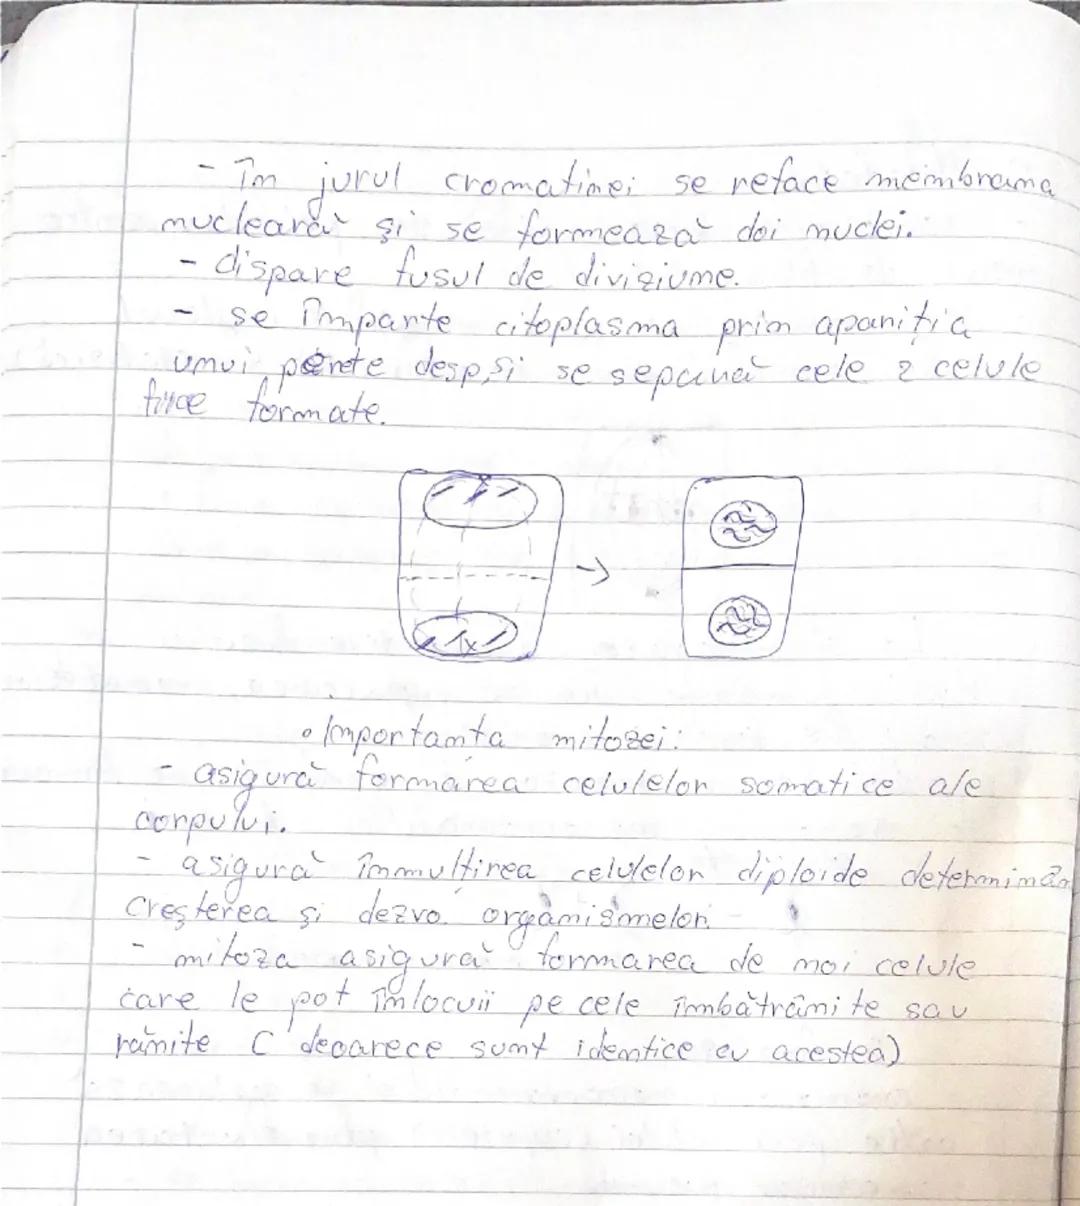 - În jurul cromatinei se reface membrana
nucleară și se formează doi nuclei.
- dispare fusul de diviziune.
- se împarte citoplasma prin apariția
unui perete desp, și se separă cele 2 celule
fiice formate.
• Importanta mitozei:
- asigură formarea celulelor somatice ale
corpului.
- asigură înmulțirea celulelor diploide determinân
creșterea și dezvo. organismelor.
- mitoza asigură formarea de noi celule
care le pot înlocuii pe cele îmbătrânite sau
rănite ( deoarece sunt identice cu acestea)